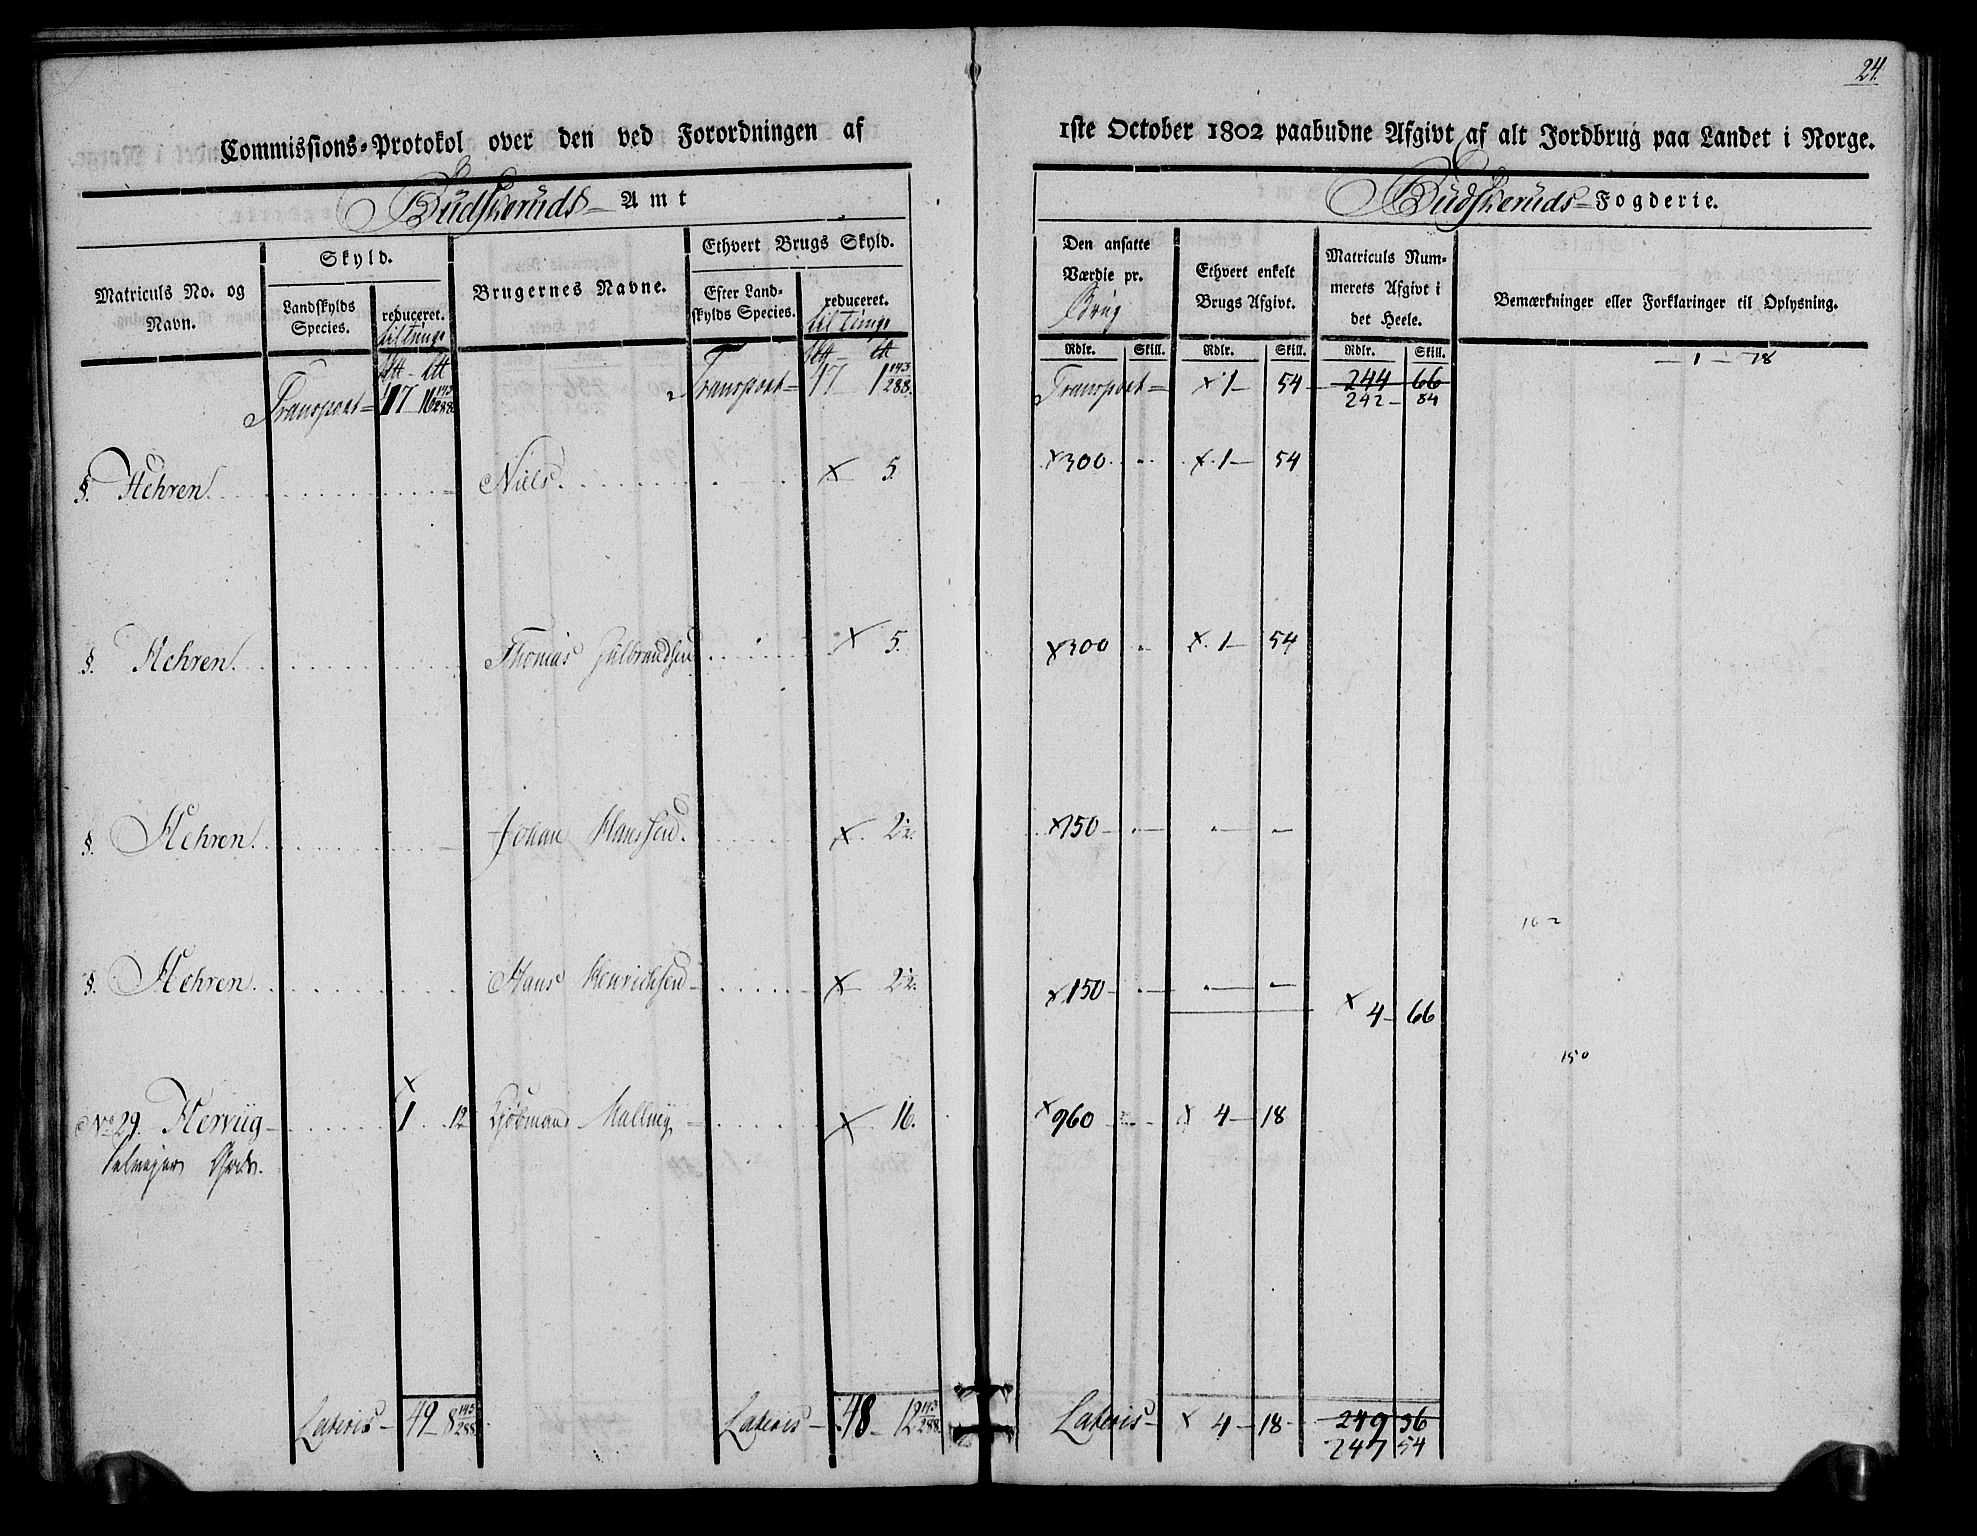 24.
Commissions-Protokol over den ved Forordningen af 1ste October 1802 paabudne Afgivt af alt Jordbrug paa Landet i Norge.
Budskeruds Amt
Budskeruds Fogderie.
Matriculs No. og Navn.
Skyld.
Landskylds Species.
reduceret. til Tunge
Brugernes Navne.
Ethvert Brugs Skyld.
Efter Landskylds Species.
reduceret. til Tunge
Den ansatte Værdie pr. Brug
Rdlr. Skill.
Ethvert enkelt Brugs Afgivt.
Rdlr. Skill.
Matriculs Nummerets Afgivt i det Heele.
Rdlr. Skill.
Bemærkninger eller Forklaringer til Oplysning.
1 - 78
Transport 17 16 143/288 Transport 17 1 143/288 Transport x 1 54 244 66
242 84
§. Hehren Niels x 5. x 300 x 1 54
§. Hehren Thomas Gulbrandsen x 5. x 300 x 1 54
§. Hehren Johan Hanssen x 2½ x 150
102
§. Hehren Hans Henrichsen x 2½ x 150 x 4 66
150
No 29. Hervug x 1 12 Malling x 16. x 960 x 4 18
Lateris 49 8 143/288 Lateris 48 12 143/288 Lateris x 4 18 249 36
247 54